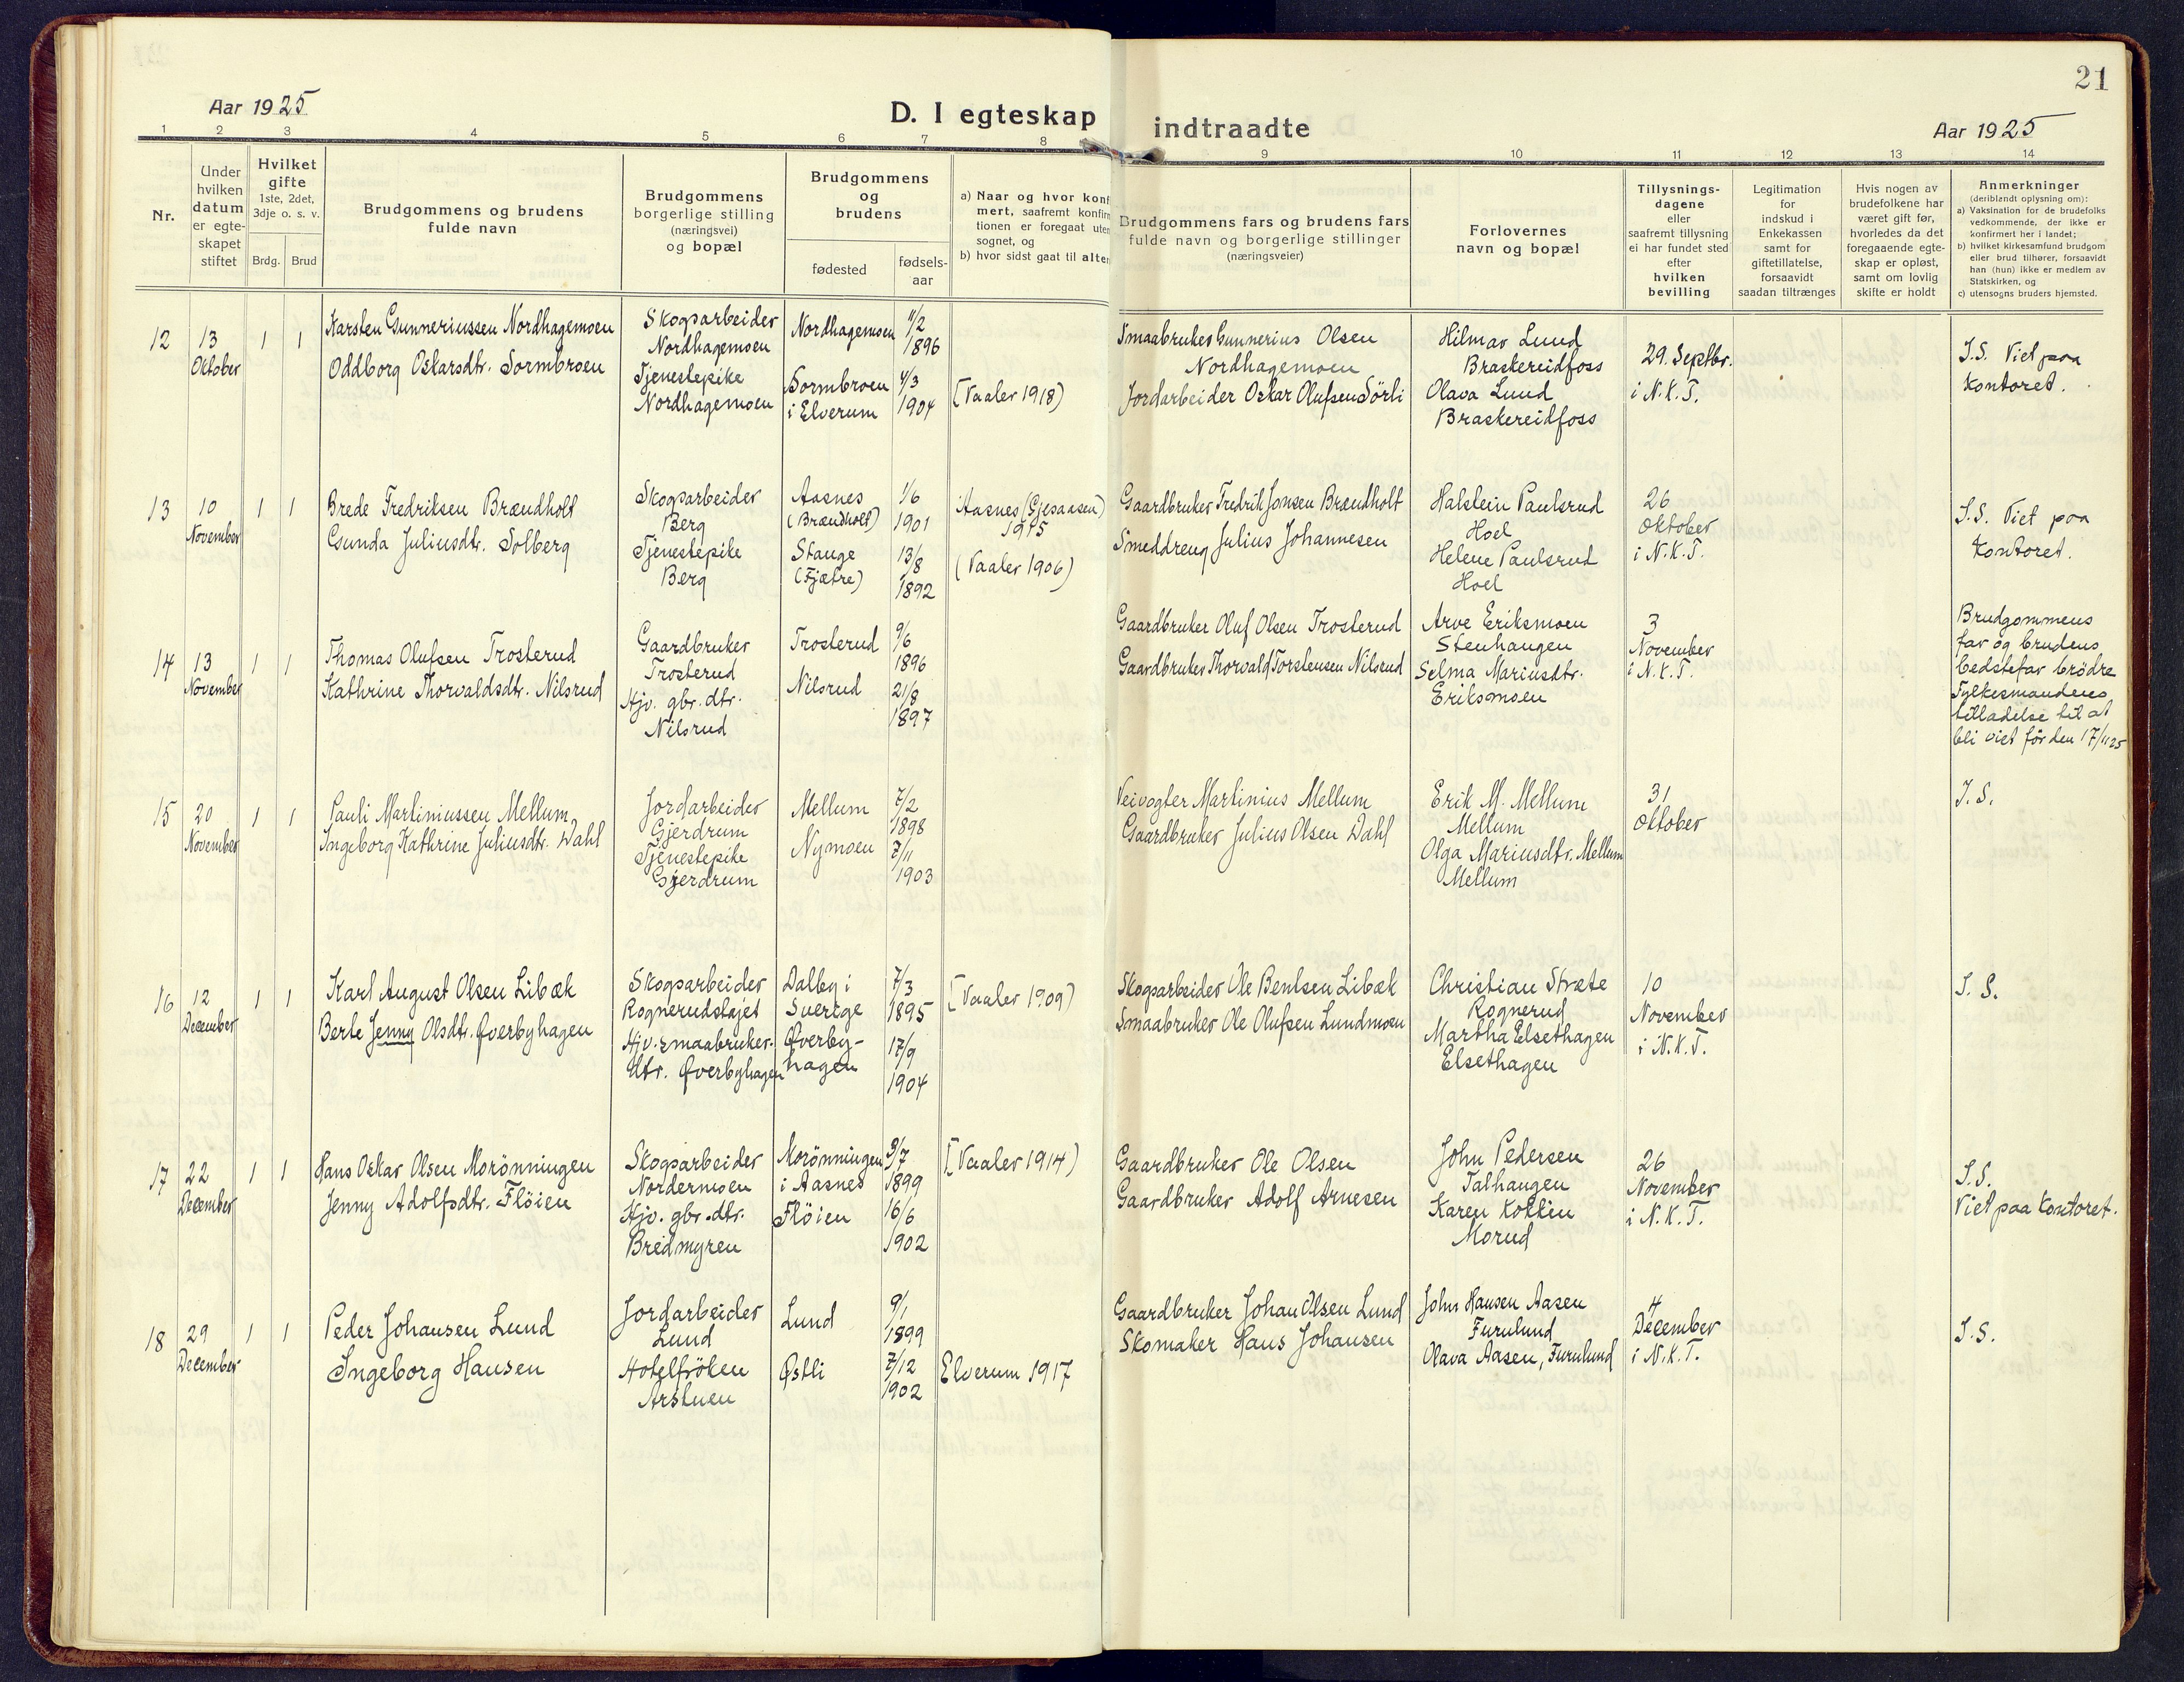 21
Aar 1925
D. I egteskap indtraadte
Aar 1925
1 2 3 4 5 6 7 8 9 10 11 12 13 14
Nr.
Under
hvilken
datum
er egte-
skapet
stiftet
Hvilket
gifte
1ste, 2det,
3dje o. s. v.
Brdg. Brud
Brudgommens og brudens
fulde navn
Brudgommens
borgerlige stilling
(næringsvei)
og bopæl
Brudgommens
og
brudens
fødested
fødsels-
aar
a) Naar og hvor konf
mert, saafremt konfir
tionen er foregaat uten
sognet, og
b) hvor sidst gaat til alter
Brudgommens fars og brudens fars
fulde navn og borgerlige stillinger
(næringsveier)
Forlovernes
navn og bopæl
Tillysnings-
dagene
eller
saafremt tillysning
ei har fundet sted
efter
hvilken
bevilling
Legitimation
for
indskud i
Enkekassen
samt for
giftetillatelse,
forsaavidt
saadan tiltrænges
Hvis nogen av
brudefolkene har
været gift før,
hvorledes da det
foregaaende egte-
skap er opløst,
samt om lovlig
skifte er holdt
Anmerkninger
(deriblandt oplysning om):
a) Vaksination for de brudefolks
vedkommende, der ikke er
konfirmert her i landet;
b) hvilket kirkesamfund brudgom
eller brud tilhører, forsaavidt
han (hun) ikke er medlem av
Statskirken, og
c) utensogns bruders hjemsted.
12
13
Oktober
1 1
Karsten Gunneriussen Nordhagemoen
Oddborg Oskarsdtr. Sormbroen
Skogsarbeider
Nordhagemoen
Tjenestepike
Nordhagemoen
Nordhagemoen
Sormbroen
i Elverum
11/2
1896
4/3
1904
(Vaaler 1918)
Smaabruker Gunnerius Olsen
Nordhagemoen
Jordarbeider Oskar Olufsen Sörli
Hilmar Lund
Braskereidfoss
Olava Lund
Braskereidfoss
29. Septbr.
i N.K.T.
I.S. Viet paa
Kontoret.
13
10
November
1 1
Brede Fredriksen Brændholt
Gunda Juliusdtr. Solberg
Skogsarbeider
Berg
Tjenestepike
Berg
Aasnes
(Brændholt)
Stange
(Fjætre)
1/6
1901
13/8
1892
Aasnes (Gjesaasen)
1915
(Vaaler 1906)
Gaardbruker Fredrik Jonsen Brændholt
Smeddreng Julius Johannesen
Halstein Paulsrud
Hoel
Helene Paulsrud
Hoel
26
Oktober
i N.K.T.
I.S. Viet paa
Kontoret.
14
13
November
1 1
Thomas Olufsen Trosterud
Kathrine Thorvaldsdtr. Nilsrud
Gaardbruker
Trosterud
Hjv. gbr. dtr.
Nilsrud
Trosterud
Nilsrud
9/6
1896
21/8
1897
Gaardbruker Oluf Olsen Trosterud
Gaardbruker Thorvald Torstensen Nilsrud
Arve Eriksmoen
Stenhaugen
Selma Mariusdtr.
Eriksmoen
3
November
i N.K.T.
Brudgommens
far og brudens
bedstefar brödre
Fylkesmandens
tilladelse til at
bli viet før den 17/11 25
15
20
November
1 1
Pauli Martiniussen Mellum
Ingeborg Kathrine Juliusdtr. Dahl
Jordarbeider
Gjerdrum
Tjenestepike
Gjerdrum
Mellum
Nymoen
7/2
1898
7/11
1903
Veivogter Martinius Mellum
Gaardbruker Julius Olsen Dahl
Erik M. Mellum
Mellum
Olga Mariusdtr. Mellum
Mellum
31
Oktober
I.S.
16
12
December
1 1
Karl August Olsen Libæk
Berte Jenny Olsdtr. Øverbyhagen
Skogsarbeider
Rognerudstøjet
Hjv. smaabruker.
dtr. Øverbyhagen
Dalby i
Sverige
Øverby-
hagen
7/3
1895
17/9
1904
(Vaaler 1909)
Skogsarbeider Ole Bentsen Libæk
Smaabruker Ole Olufsen Lundmoen
Christian Stræte
Rognerud
Martha Elsethagen
Elsethagen
10
November
i N.K.T.
I.S.
17
22
December
1 1
Hans Oskar Olsen Morönningen
Jenny Adolfsdtr. Flöien
Skogsarbeider
Nordermoen
Hjv. gbr. dtr.
Bredmyren
Morönningen
i Aasnes
Flöien
9/7
1899
16/6
1902
(Vaaler 1914)
Gaardbruker Ole Olsen
Gaardbruker Adolf Arnesen
John Pedersen
Talhaugen
Karen Kollin
Morud
26
November
i N.K.T.
I.S.
Viet paa Kontoret.
18
29
December
1 1
Peder Johansen Lund
Ingeborg Hansen
Jordarbeider
Lund
Hotelfröken
Arstuen
Lund
Østli
9/1
1899
7/12
1902
Elverum 1917
Gaardbruker Johan Olsen Lund
Skomaker Hans Johansen
John Hansen Aasen
Furulund
Olava Aasen, Furulund
4
December
i N.K.T.
I.S.